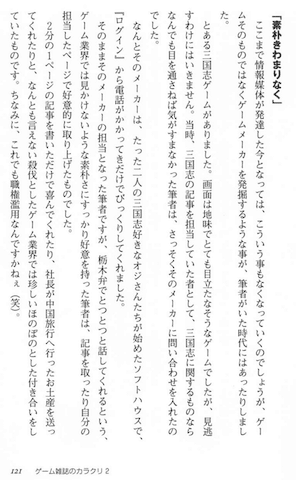 「素朴きわまりなく」
ここまで情報媒体が発達した今となっては、こういう事もなくなっていくのでしょうが、ゲー
ムそのものではなくゲームメーカーを発掘するような事が、筆者がいた時代にはあったりしまし
た。
とある三国志ゲームがありました。画面は地味でとても目立たなそうなゲームでしたが、見逃
すわけにはいきません。当時、三国志の記事を担当していた者として、三国志に関するものなら
なんでも目を通さねば気がすまなかった筆者は、さっそくそのメーカーに問い合わせを入れたの
でした。
なんとそのメーカーは、たった二人の三国志好きなオジさんたちが始めたソフトハウスで、
『ログイン』から電話がかかってきただけでびっくりしてくれました。
そのままそのメーカーの担当となった筆者ですが、栃木弁でとつとつと話してくれるという、
ゲーム業界では見かけないような素朴さにすっかり好意を持った筆者は、記事を取ったり自分の
担当したページで好意的に取り上げたものでした。
2分の1ページの記事を書いただけで喜んでくれたり、社長が中国旅行へ行ったお土産を送っ
てくれたりと、なんとも言えない殺伐としたゲーム業界では珍しいほのぼのとした付き合いをし
ていたものです。ちなみに、これでも職権濫用なんですかねぇ(笑)。
121 ゲーム雑誌のカラクリ2